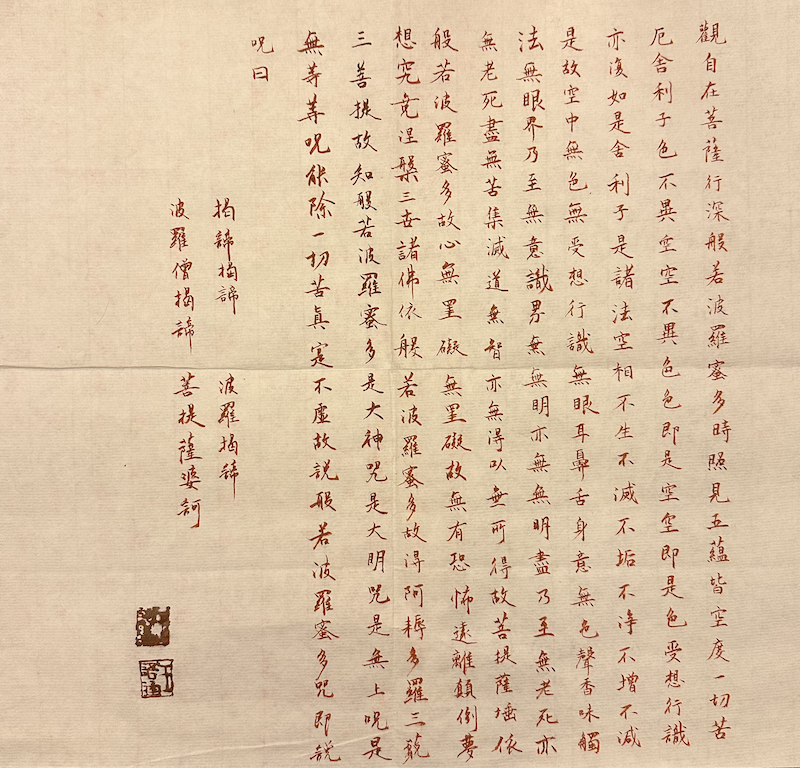 觀自在菩薩行深般若波羅蜜多時照見五蘊皆空度一切苦
厄舍利子色不異空空不異色色即是空空即是色受想行識
亦復如是舍利子是諸法空相不生不滅不垢不淨不增不減
是故空中無色無受想行識無眼耳鼻舌身意無色聲香味觸
法無眼界乃至無意識界無無明亦無無明盡乃至無老死亦
無老死盡無苦集滅道無智亦無得以無所得故菩提薩埵依
般若波羅蜜多故心無罣礙無罣礙故無有恐怖遠離顛倒夢
想究竟涅槃三世諸佛依般若波羅蜜多故得阿耨多羅三藐
三菩提故知般若波羅蜜多是大神咒是大明咒是無上呪是
無等等呪能除一切苦眞寔不虛故說般若波羅蜜多呪即說
呪曰
揭諦揭諦 波羅揭諦
波羅僧揭諦 菩提薩婆訶